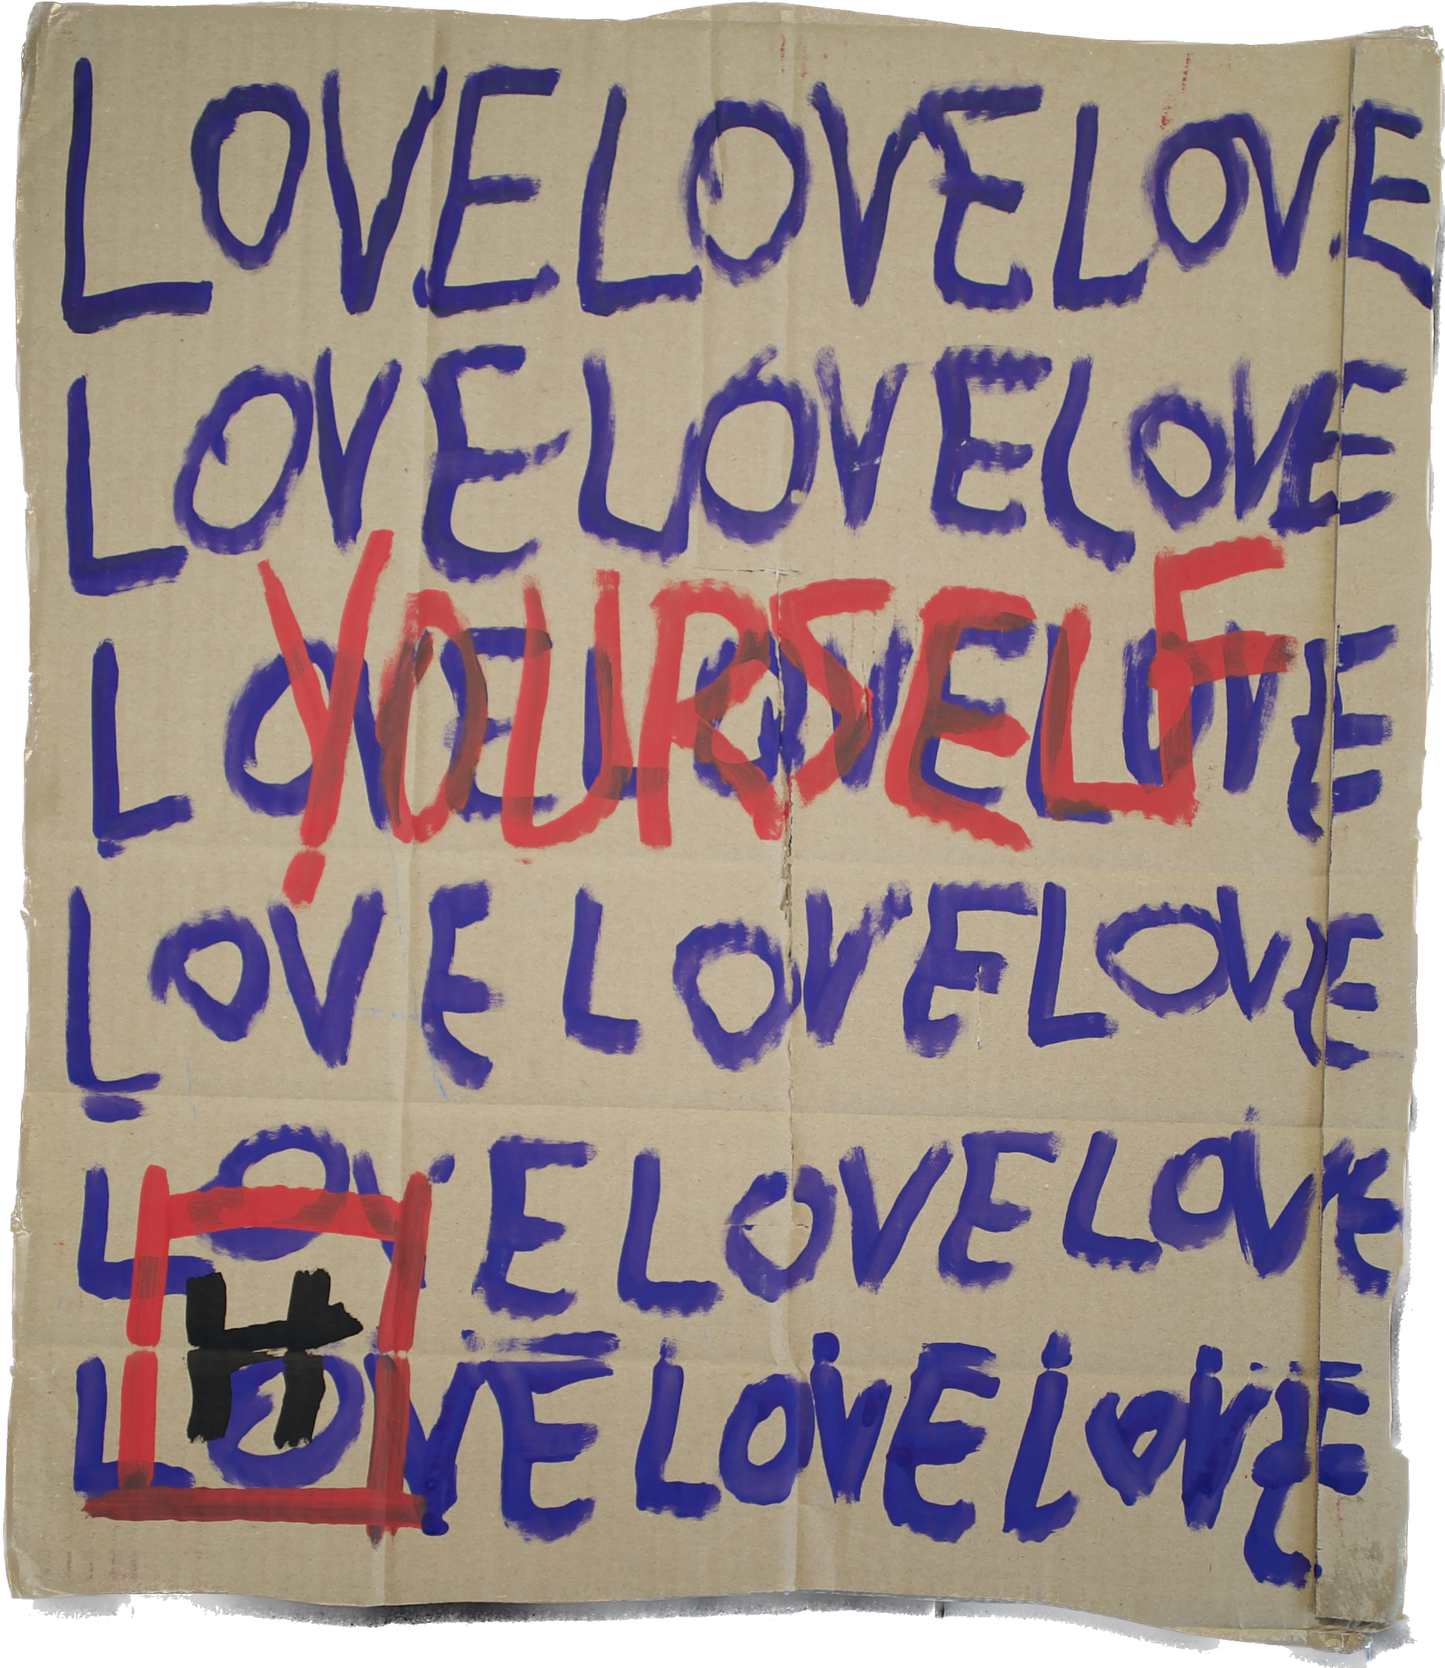 LOVELOVELOVE
LOVELOVELOVE
YOURSELF
LOVELOVELOVE
LOVELOVELOVE
LOVELOVELOVE
H
LOVELOVELOVE